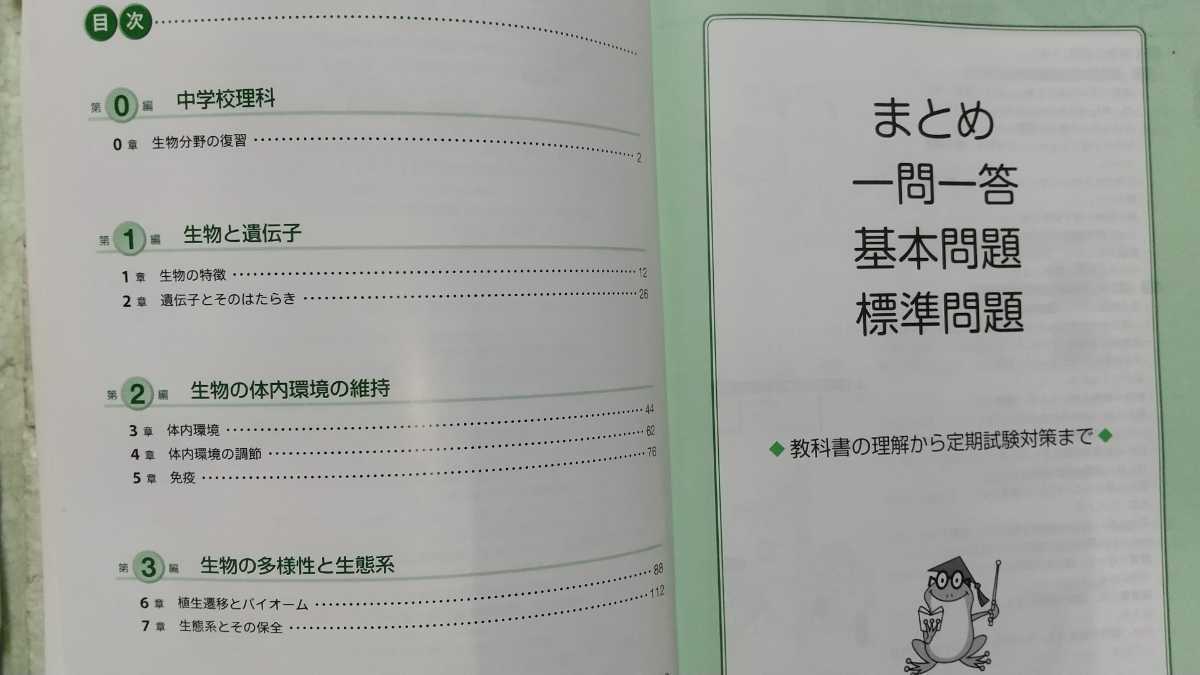 目次
第0編 中学校理科
0章 生物分野の復習 2
第1編 生物と遺伝子
1章 生物の特徴 12
2章 遺伝子とそのはたらき 26
第2編 生物の体内環境の維持
3章 体内環境 44
4章 体内環境の調節 62
5章 免疫 76
第3編 生物の多様性と生態系
6章 植生遷移とバイオーム 88
7章 生態系とその保全 112
まとめ
一問一答
基本問題
標準問題
◆教科書の理解から定期試験対策まで◆